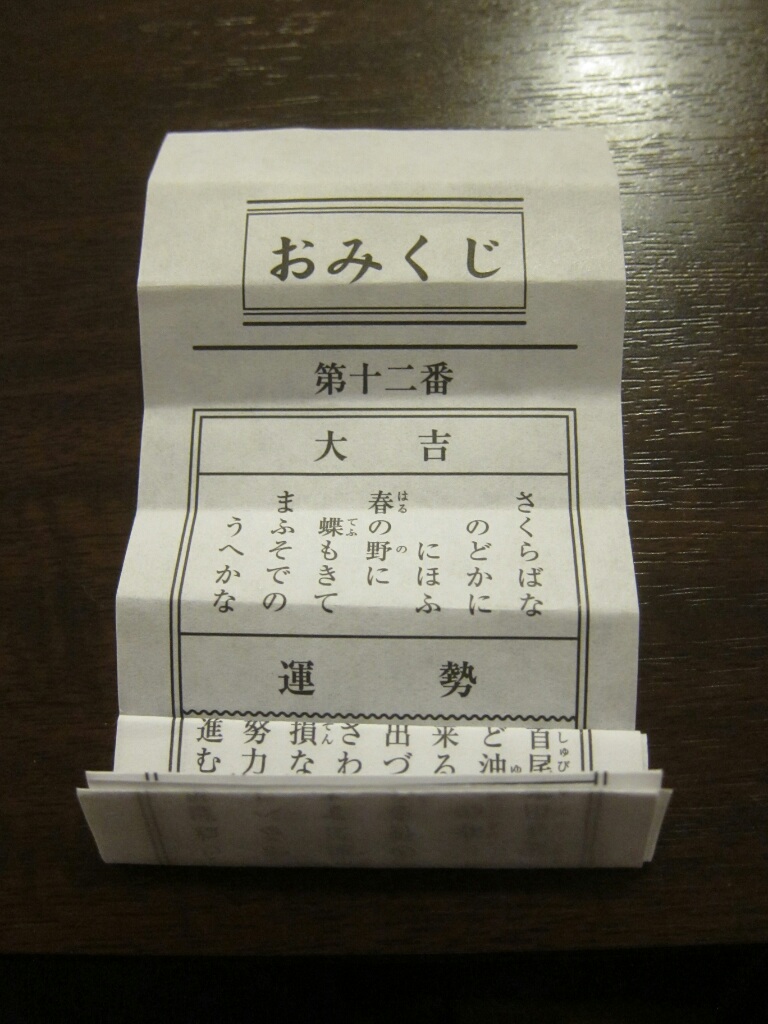 おみくじ
第十二番
大吉
さくらばな
のどかに
にほふ
春の野に
蝶もきて
まふそでの
うへかな
運勢
首尾
ど油
来る
出づ
さわ
損な
努力
進む